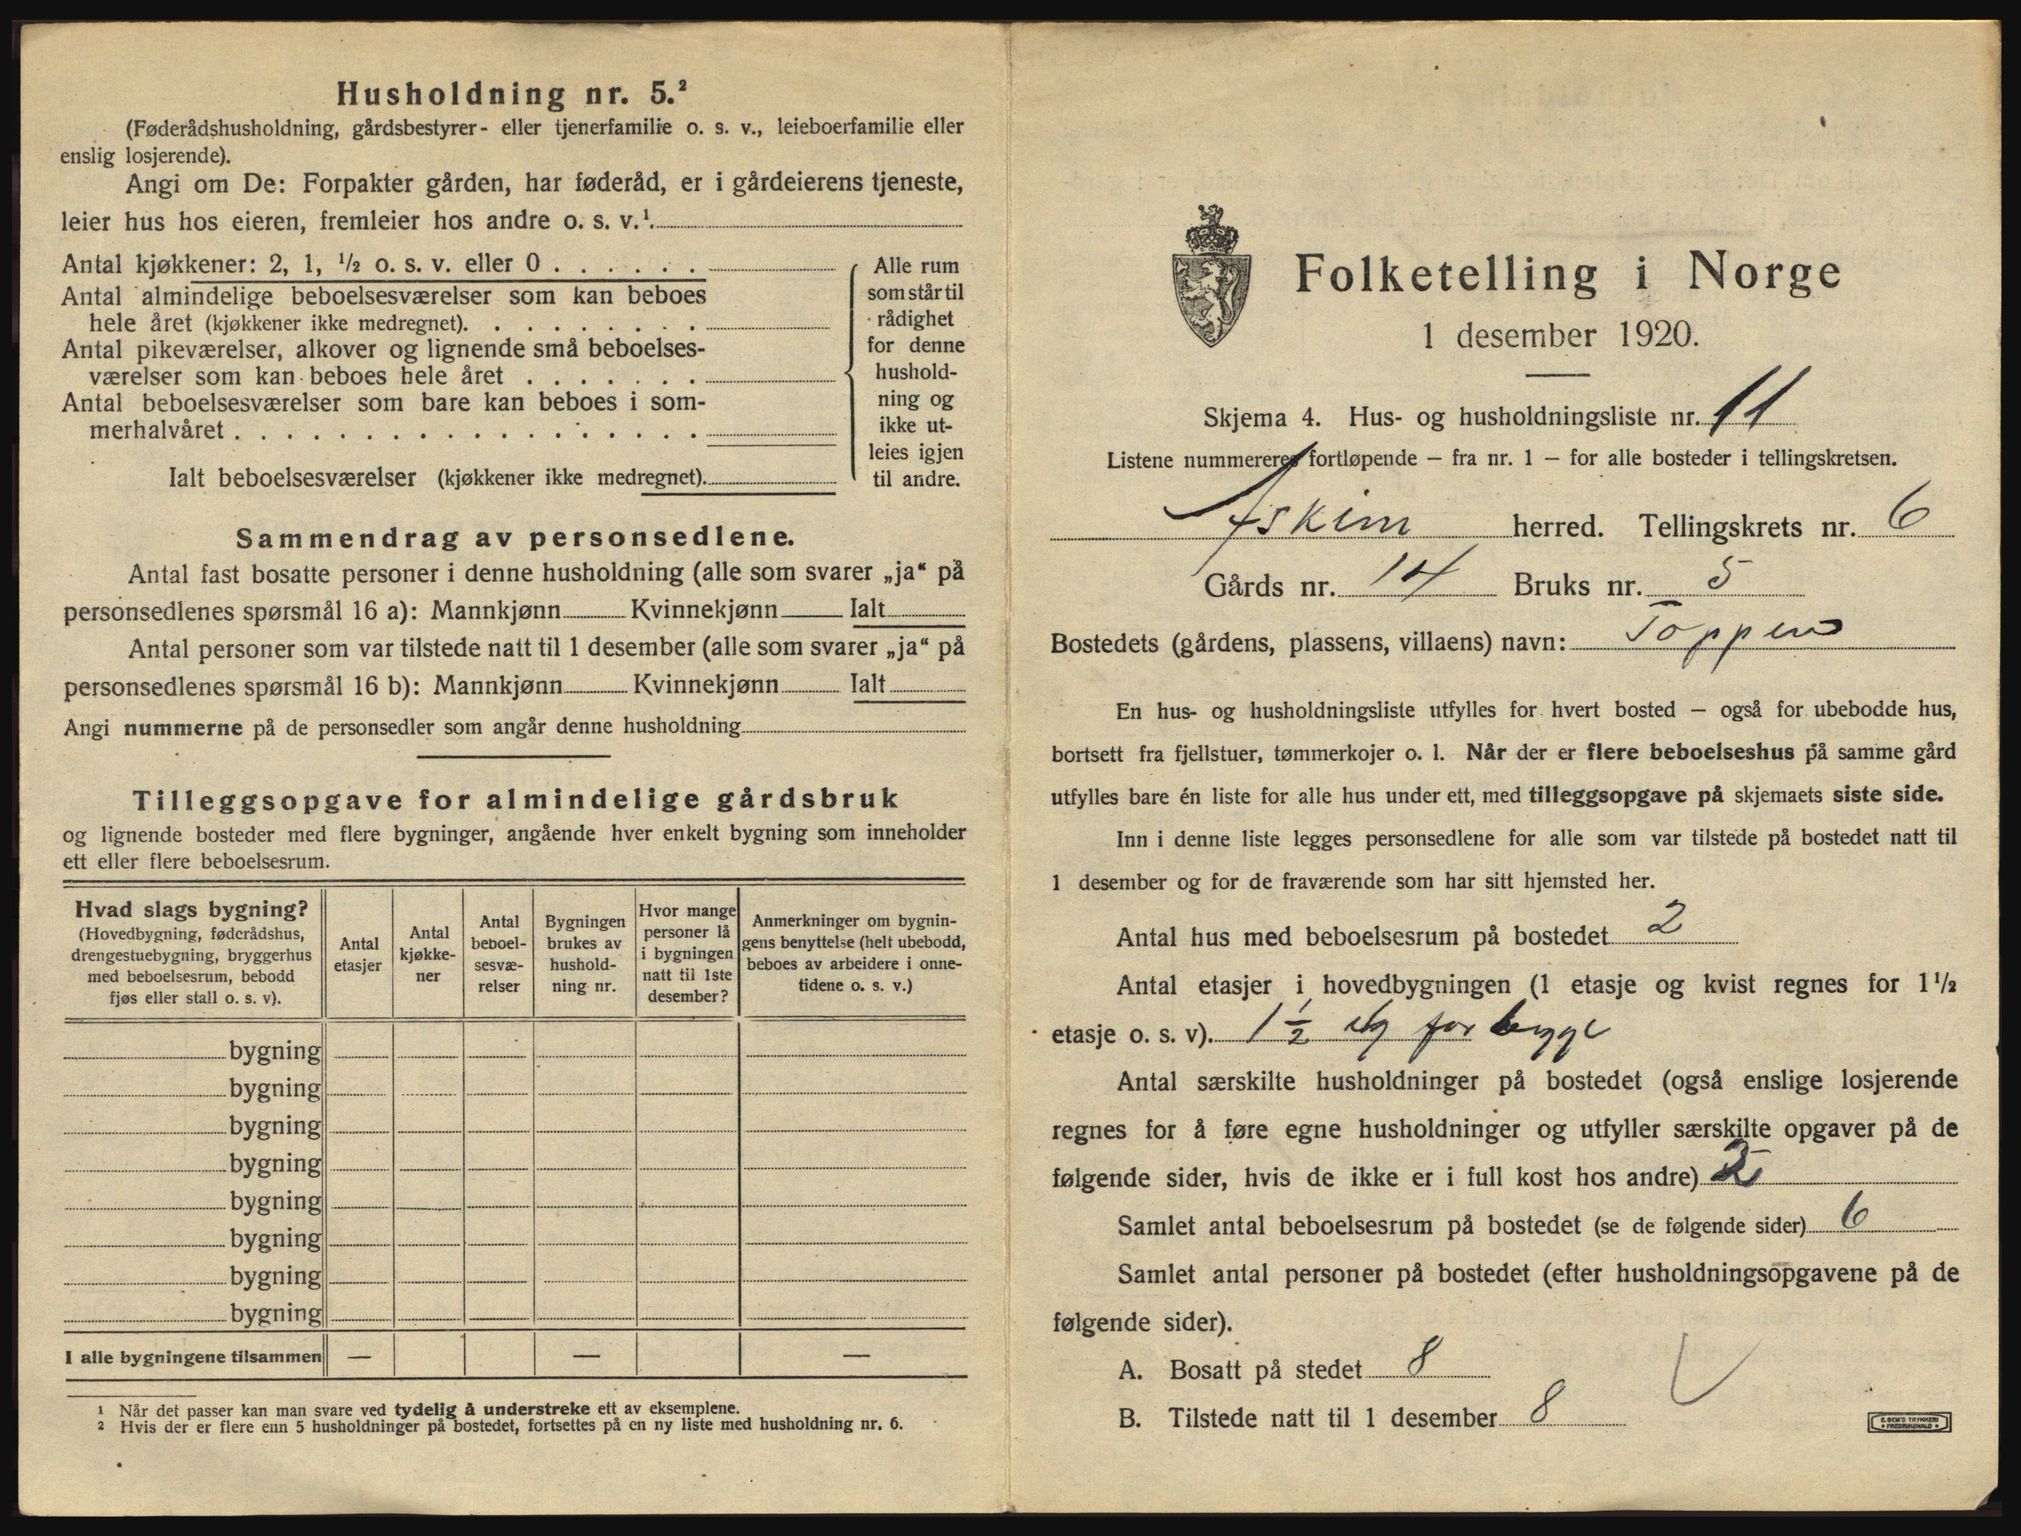 Husholdning nr. 5.²
(Føderådshusholdning, gårdsbestyrer- eller tjenerfamilie o. s. v., leieboerfamilie eller
enslig losjerende).
Angi om De: Forpakter gården, har føderåd, er i gårdeierens tjeneste,
leier hus hos eieren, fremleier hos andre o. s. v.¹.
Antal kjøkkener: 2, 1, ½ o. s. v. eller 0 . . . . . .
Antal almindelige beboelsesværelser som kan beboes
hele året (kjøkkener ikke medregnet). . . . . . . . .
Antal pikeværelser, alkover og lignende små beboelses-
værelser som kan beboes hele året . . . . . . .
Antal beboelsesværelser som bare kan beboes i som-
merhalvåret . . . . . . . . . . . . . . . . . .
Ialt beboelsesværelser (kjøkkener ikke medregnet).
Alle rum
som står til
rådighet
for denne
hushold-
ning og
ikke ut-
leies igjen
til andre.
Sammendrag av personsedlene.
Antal fast bosatte personer i denne husholdning (alle som svarer „ja“ på
personsedlenes spørsmål 16 a): Mannkjønn Kvinnekjønn Ialt
Antal personer som var tilstede natt til 1 desember (alle som svarer „ja“ på
personsedlenes spørsmål 16 b): Mannkjønn Kvinnekjønn Ialt
Angi nummerne på de personsedler som angår denne husholdning
Tilleggsopgave for almindelige gårdsbruk
og lignende bosteder med flere bygninger, angående hver enkelt bygning som inneholder
ett eller flere beboelsesrum.
Hvad slags bygning?
(Hovedbygning, føderådshus,
drengestuebygning, bryggerhus
med beboelsesrum, bebodd
fjøs eller stall o. s. v).
Antal
etasjer
Antal
kjøkke-
ner
Antal
beboel-
sesvæ-
relser
Bygningen
brukes av
hushold-
ning nr.
Hvor mange
personer lå
i bygningen
natt til 1ste
desember?
Anmerkninger om bygnin-
gens benyttelse (helt ubebodd,
beboes av arbeidere i onne-
tidene o. s. v.)
bygning
bygning
bygning
bygning
bygning
bygning
bygning
bygning
I alle bygningene tilsammen — — —
¹ Når det passer kan man svare ved tydelig å understreke ett av eksemplene.
² Hvis der er flere enn 5 husholdninger på bostedet, fortsettes på en ny liste med husholdning nr. 6.
Folketelling i Norge
1 desember 1920.
Skjema 4. Hus- og husholdningsliste nr. 11
Listene nummereres fortløpende – fra nr. 1 – for alle bosteder i tellingskretsen.
Askim herred. Tellingskrets nr. 6
Gårds nr. 14 Bruks nr. 5
Bostedets (gårdens, plassens, villaens) navn: Toppen
En hus- og husholdningsliste utfylles for hvert bosted – også for ubebodde hus,
bortsett fra fjellstuer, tømmerkojer o. l. Når der er flere beboelseshus på samme gård
utfylles bare én liste for alle hus under ett, med tilleggsopgave på skjemaets siste side.
Inn i denne liste legges personsedlene for alle som var tilstede på bostedet natt til
1 desember og for de fraværende som har sitt hjemsted her.
Antal hus med beboelsesrum på bostedet 2
Antal etasjer i hovedbygningen (1 etasje og kvist regnes for 1½
etasje o. s. v). 1½ og for bygge
Antal særskilte husholdninger på bostedet (også enslige losjerende
regnes for å føre egne husholdninger og utfyller særskilte opgaver på de
følgende sider, hvis de ikke er i full kost hos andre)
Samlet antal beboelsesrum på bostedet (se de følgende sider) 6
Samlet antal personer på bostedet (efter husholdningsopgavene på de
følgende sider).
A. Bosatt på stedet 8
B. Tilstede natt til 1 desember 8